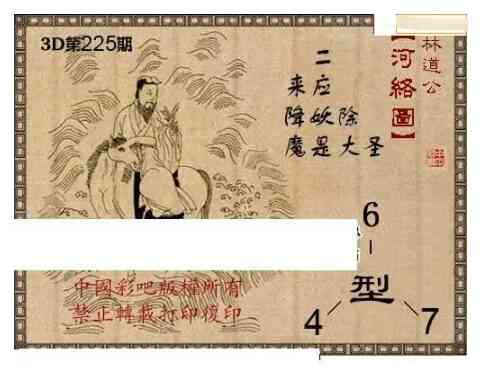 3D第225期
林道公
【河络圖】
二
来应
降妖除
魔是大圣
6
型
4 7
中國彩吧版權所有
禁止轉載打印復印